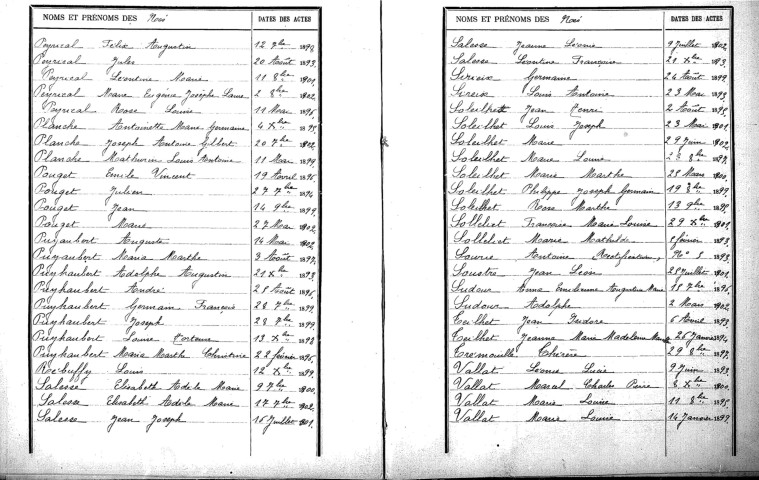 NOMS ET PRÉNOMS DES Nés DATES DES ACTES
Peyrical Félix Augustin 12 7bre 1898
Peyrical Jules 20 Août 1893
Peyrical Léontine Marie 11 8bre 1901
Peyrical Marie Eugénie Josèphe Laure 2 8bre 1902
Peyrical Rose Louise 11 Mai
Planche Antoinette Marie Germaine 4 Xbre 1895
Planche Joseph Antoine Gilbert 20 7bre 1902
Planche Mathurin Louis Antoine 11 Mai 1899
Pouget Emile Vincent 19 Avril 1896
Pouget Julien 27 7bre 1894
Pouget Jean 14 9bre 1899
Pouget Marie 27 Mai 1902
Puyaubert Auguste 14 Mai 1902
Puyaubert Maria Marthe 3 Août 1897
Puyhaubert Adolphe Augustin 21 Xbre 1893
Puyhaubert André 25 Août
Puyhaubert Germain François 28 7bre 1899
Puyhaubert Joseph 28 7bre 1899
Puyhaubert Laure Hortense 13 Xbre 1898
Puyhaubert Maria Marthe Christine 22 février
Rocbuffy Louis 12 Xbre 1899
Salesse Elisabeth Adèle Marie 9 7bre 1900
Salesse Elisabeth Adèle Marie 17 7bre 1902
Salesse Jean Joseph 16 Juillet 1901
NOMS ET PRÉNOMS DES Nés DATES DES ACTES
Salesse Jeanne Léonie 9 Juillet 1902
Salesse Léontine Françoise 21 Xbre 1893
Sirieix Germaine 24 Août 1899
Sireix Louis Antoine 23 Mai
Soleilhet Jean Henri 2 Août
Soleilhet Louis Joseph 23 Mai 1901
Soleilhet Marie 29 Juin 1902
Soleilhet Marie Louise 28 8bre 1897
Soleilhet Marie Marthe 23 Mars 1900
Soleilhet Philippe Joseph Germain 19 8bre 1899
Soleilhet Rose Marthe 13 9bre
Solleliet Françoise Marie Louise 29 Xbre 1901
Solleliet Marie Mathilde février 1893
Sourie Antoine Rectification N° 5 1893
Soustre Jean Léon 28 Juillet 1901
Sudour Anna Emilienne Augustine Marie 15 7bre 1896
Sudour Adolphe 2 Mars 1902
Teilhet Jean Isidore 6 Avril 1893
Teilhet Jeanne Marie Madeleine 26 Janvier
Trémouille Thérèse 29 8bre 1897
Vallat Léonie Lucie 9 Juin 1893
Vallat Marcel Charles Pierre 8 Xbre 1900
Vallat Marie Louise 11 8bre 1895
Vallat Marie Louise 14 Janvier 1899